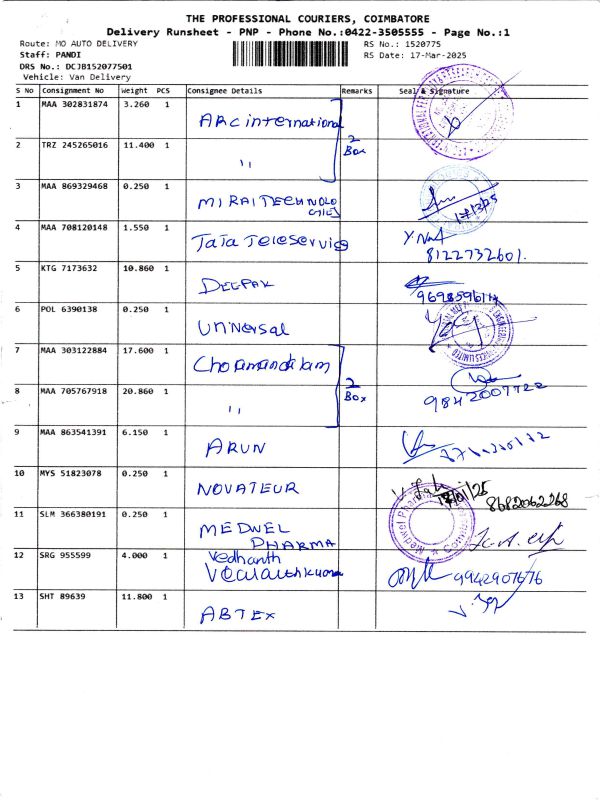 THE PROFESSIONAL COURIERS, COIMBATORE
Delivery Runsheet - PNP - Phone No.:0422-3505555 - Page No.:1
Route: MO AUTO DELIVERY RS No.: 1520775
Staff: PANDI RS Date: 17-Mar-2025
DRS No.: DCJB152077501
Vehicle: Van Delivery
S No Consignment No Weight PCS Consignee Details Remarks Seal & Signature
1 MAA 302831874 3.260 1 ARC international
2 Box
2 TRZ 245265016 11.400 1 ''
3 MAA 869329468 0.250 1 MIRAI TECHNOLO
GIES 17/3/25
4 MAA 708120148 1.550 1 Tata Teleservice
8122732601.
5 KTG 7173632 10.860 1 DEEPAK
6 POL 6390138 0.250 1 Universal
7 MAA 303122884 17.600 1 Cholamandalam
2 Box
8 MAA 705767918 20.860 1 '' 9842007722
9 MAA 863541391 6.150 1 ARUN
10 MYS 51823078 0.250 1 NOVATEUR 8682062268
11 SLM 366380191 0.250 1 MEDWEL
PHARMA
12 SRG 955599 4.000 1 Vedhanth
9942907676
13 SHT 89639 11.800 1 ABTEX